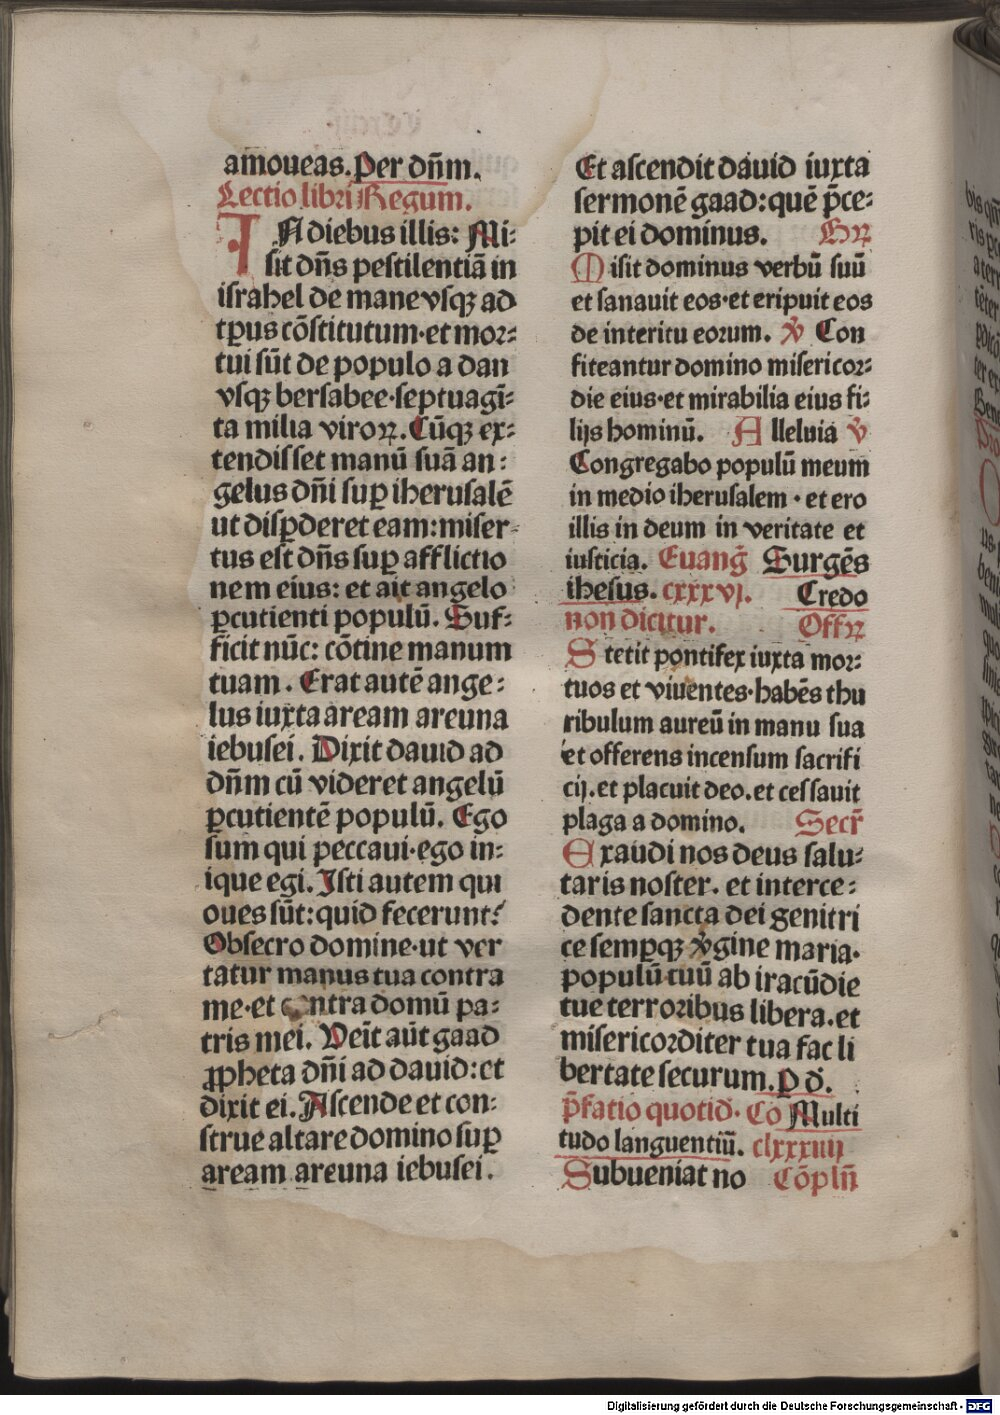 amoueas. Per dn̄m.
Lectio libri Regum.
IN diebus illis: Mi:
sit dn̄s pestilentiā in
israhel de mane vsqꝫ ad
tp̄us cōstitutum·et mor:
tui sūt de populo a dan
vsqꝫ bersabee·septuagī:
ta milia viroꝝ. Cūqꝫ ex:
tendisset manū suā an:
gelus dn̄i suꝑ iherusalē
ut disꝑderet eam: miser:
tus est dn̄s suꝑ afflictio
nem eius: et ait angelo
ꝑcutienti populū. Suf:
ficit nūc: cōtine manum
tuam. Erat autē ange:
lus iuxta aream areuna
iebusei. Dixit dauid ad
dn̄m cū videret angelū
ꝑcutientē populū. Ego
sum qui peccaui·ego in:
ique egi. Isti autem qui
oues sūt: quid fecerunt?
Obsecro domine·ut ver
tatur manus tua contra
me·et contra domū pa:
tris mei. Veīt aūt gaad
ꝓpheta dn̄i ad dauid: et
dixit ei. Ascende et con:
strue altare domino suꝑ
aream areuna iebusei.
Et ascendit dauid iuxta
sermonē gaad: quē p̄ce:
pit ei dominus. Gꝝ
Misit dominus verbū suū
et sanauit eos·et eripuit eos
de interitu eorum. V̄ Con
fiteantur domino misericor:
die eius·et mirabilia eius fi:
lijs hominū. Alleluia V̄
Congregabo populū meum
in medio iherusalem · et ero
illis in deum in veritate et
iusticia. Euanḡ Surgēs
ihesus. cxxxvj. Credo
non dicitur. Offꝝ
Stetit pontifex iuxta mor:
tuos et viuentes·habēs thu
ribulum aureū in manu sua
et offerens incensum sacrifi
cij. et placuit deo. et cessauit
plaga a domino. Secr̄
Exaudi nos deus salu:
taris noster. et interce:
dente sancta dei genitri
ce semꝑqꝫ v̄gine maria.
populū tuū ab iracūdie
tue terroribus libera. et
misericorditer tua fac li
bertate securum. P d̄.
p̄fatio quotid̄· Co Multi
tudo languentiū. clxxxiiij
Subueniat no Cōpln̄
Digitalisierung gefördert durch die Deutsche Forschungsgemeinschaft - DFG